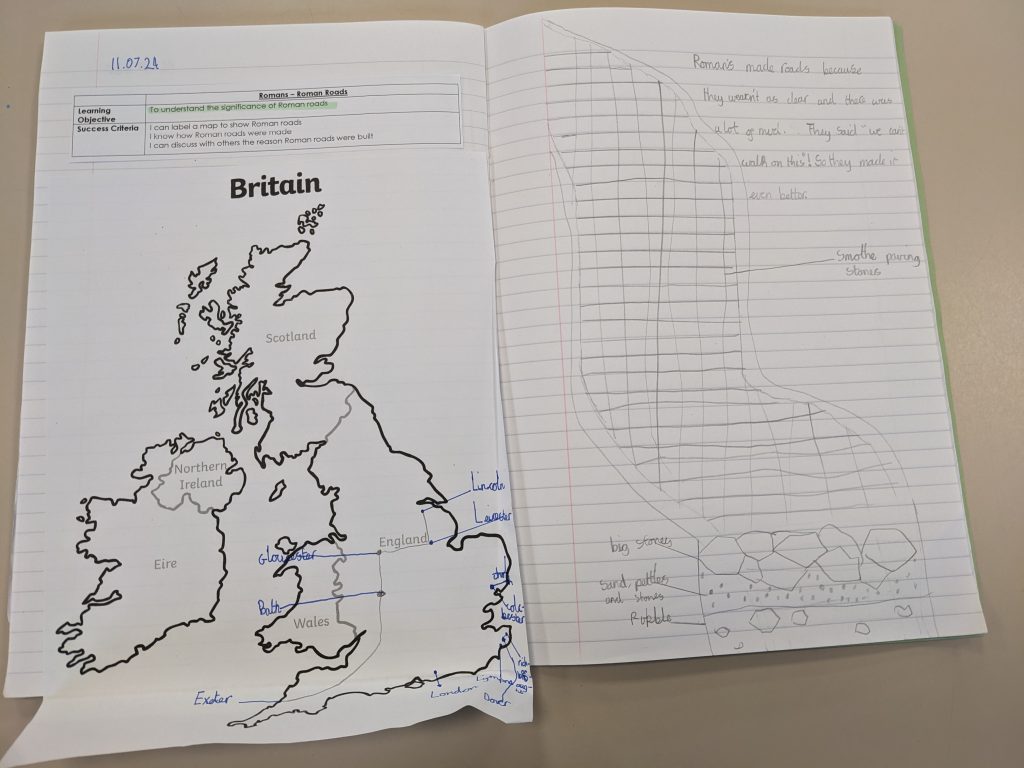 11.07.24
Romans – Roman Roads
Learning Objective
To understand the significance of Roman roads
Success Criteria
I can label a map to show Roman roads
I know how Roman roads were made
I can discuss with others the reason Roman roads were built
Britain
Scotland
Northern
Ireland
Eire
England
Wales
Lincoln
Gloucester
Bath
Exeter
London
Dover
Roman's made roads because
they wearn't as clear and there was
a lot of mud... They said "we can't
walk on this"! So they made it
even better.
Smothe paving
stones
big stones
Sand, pebbles
and stones
Rubble